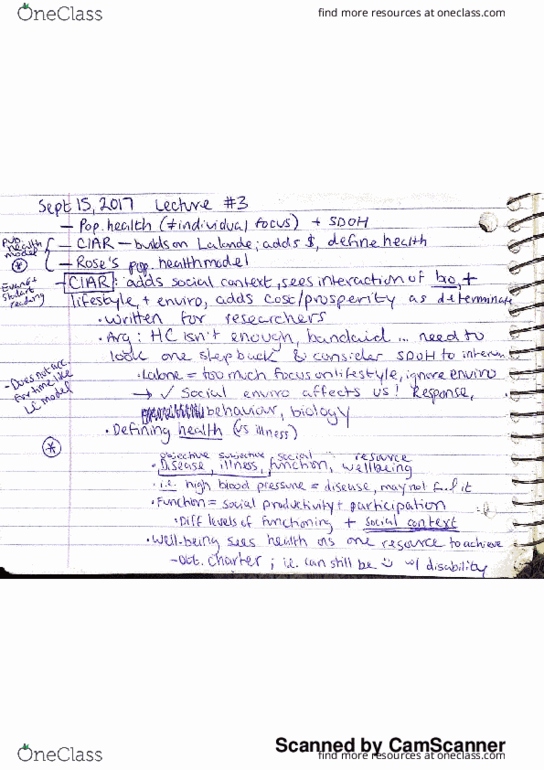 OneClass
find more resources at oneclass.com
Sept 15, 2017 Lecture #3
— Pop. health (≠individual focus) + SDOH
Pop health model
— CIAR — builds on Lalonde; adds $, define health
— Rose's pop. health model
Evans + Stodart reading
— CIAR: adds social context, sees interaction of bio, +
lifestyle, + enviro, adds cost/prosperity as determinate
• written for researchers
• Arg: HC isn't enough, bandaid ... need to
look one step back & consider SDOH to interven
- Does not acc. for time like LC model
• Lalone = too much focus on lifestyle, ignore enviro
→ ✓ Social enviro affects us! Response,
behaviour, biology
• Defining health (vs illness)
objective subjective social resource
• Disease, illness, function, wellbeing
• i.e. high blood pressure = disease, may not feel it
• Function = social productivity + participation
• Diff levels of functioning + social context
• Well-being sees health as one resource to achieve
- Ott. Charter ; i.e. can still be ☺ w/ disability
Scanned by CamScanner
OneClass
find more resources at oneclass.com